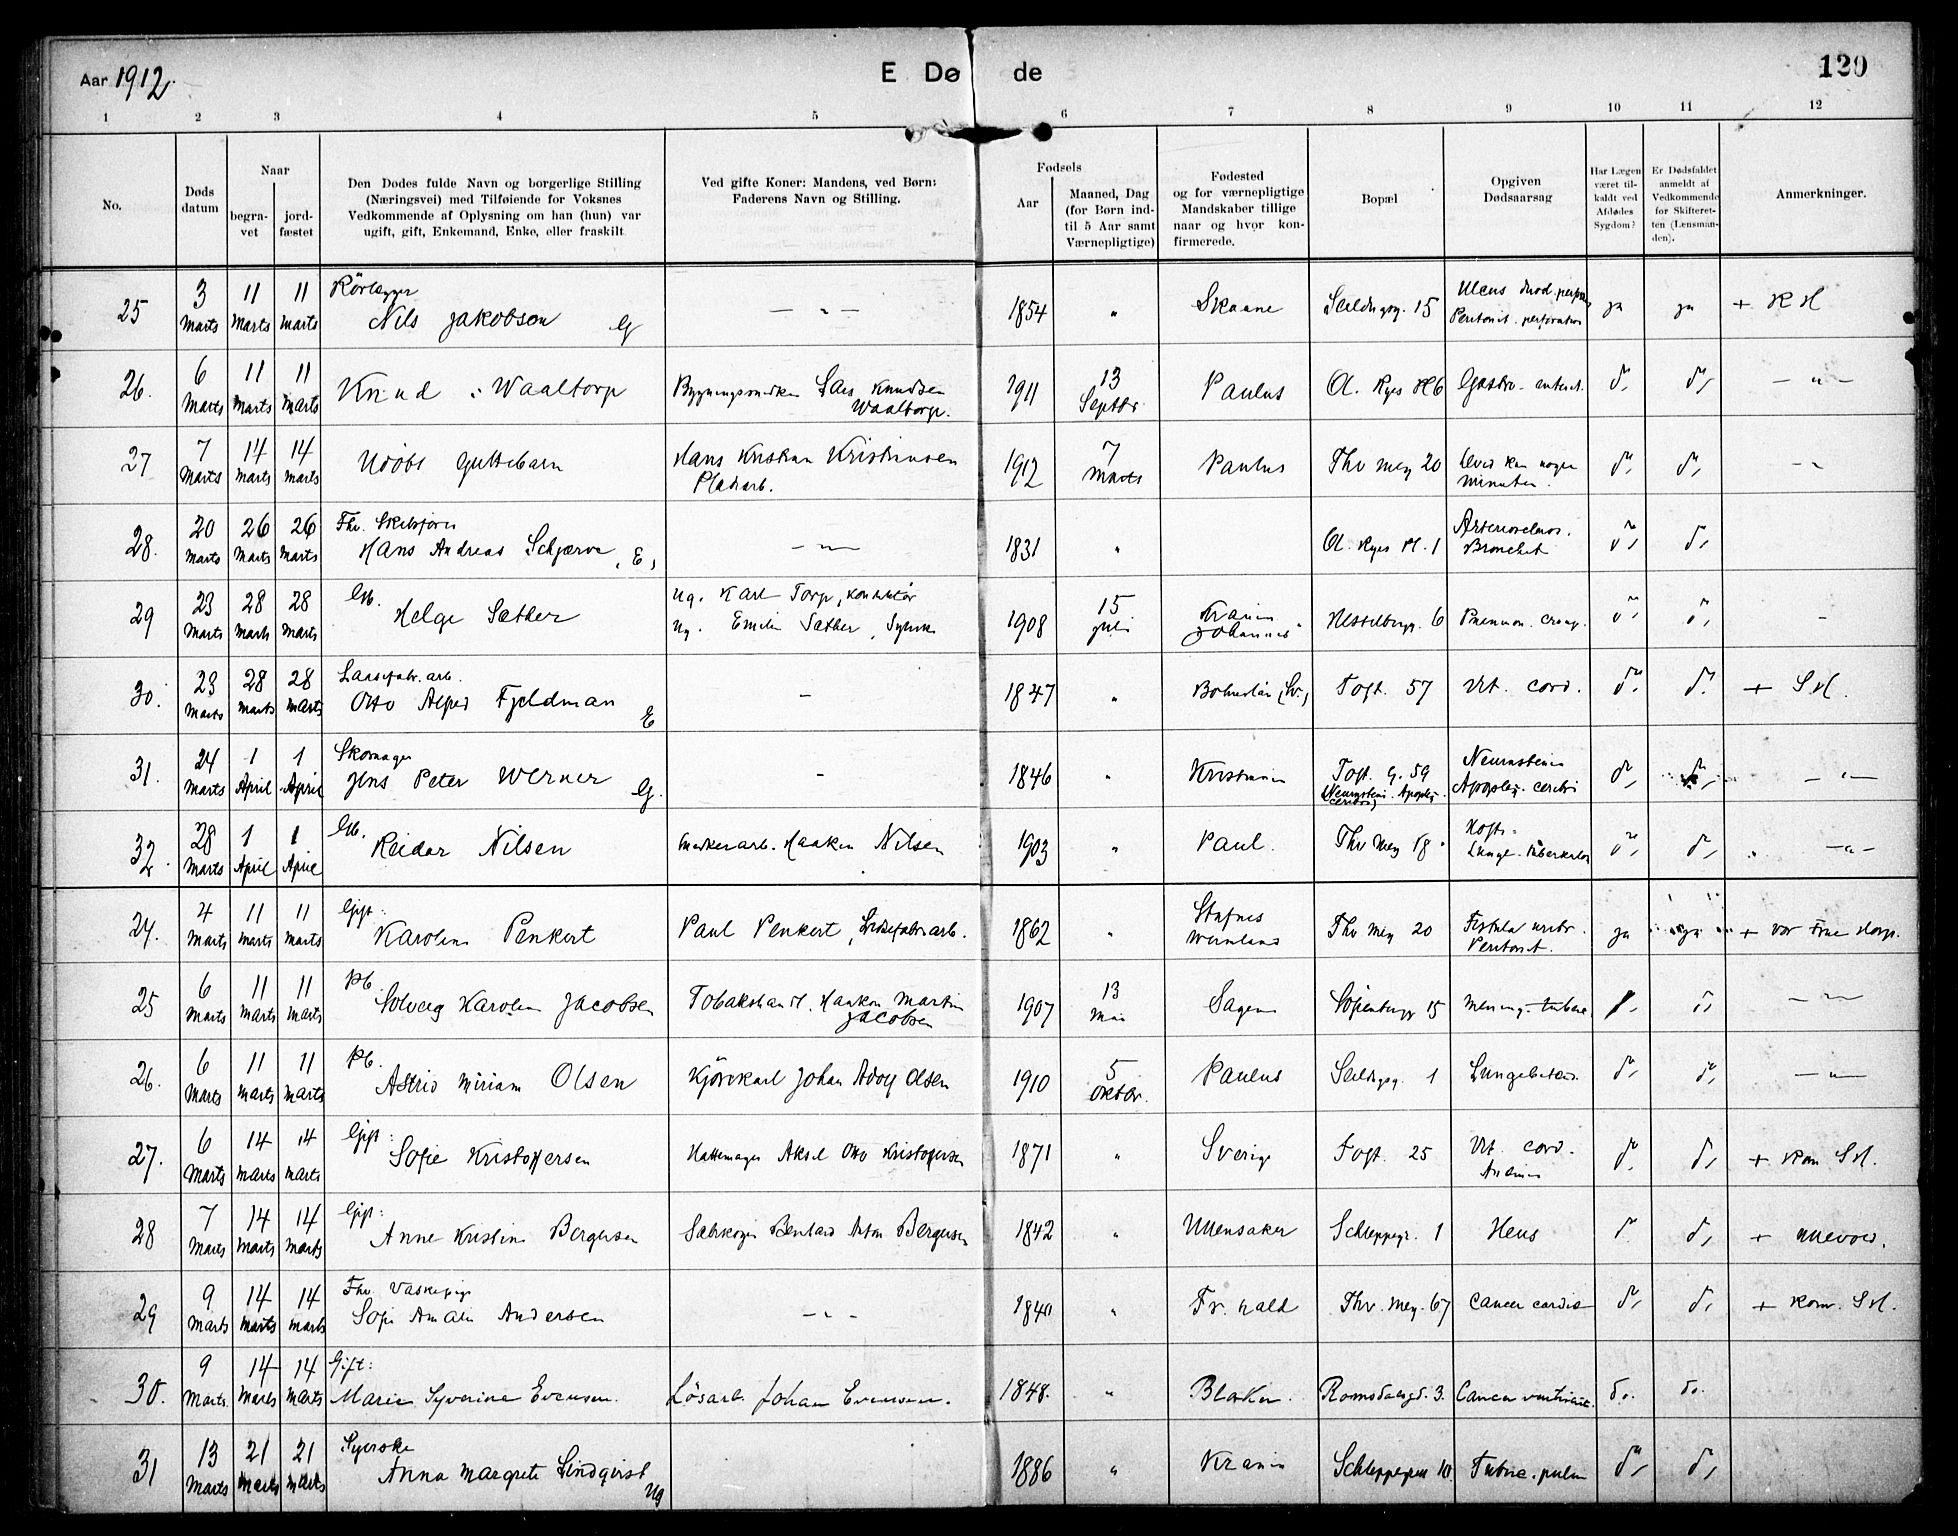 Aar 1912.
E Dø de
129
1 2 3 4 5 6 7 8 9 10 11 12
No.
Døds datum
Naar
begra-vet
jord-fæstet
Den Dødes fulde Navn og borgerlige Stilling
(Næringsvei) med Tilføiende for Voksnes
Vedkommende af Oplysning om han (hun) var
ugift, gift, Enkemand, Enke, eller fraskilt.
Ved gifte Koner: Mandens, ved Børn:
Faderens Navn og Stilling.
Fødsels
Aar
Maaned, Dag
(for Børn ind-
til 5 Aar samt
Værnepligtige)
Fødested
og for værnepligtige
Mandskaber tillige
naar og hvor kon-
firmerede.
Bopæl
Opgiven
Dødsaarsag
Har Lægen
været til-
kaldt ved
Afdødes
Sygdom?
Er Dødsfaldet
anmeldt af
Vedkommende
for Skifteret-
ten (Lensman-
den).
Anmerkninger.
25 3 Marts 11 Marts 11 Marts Rörlægger
Nils Jakobsen G — „ — 1854 „ Skaane Seildugsg. 15 Ulcus duod. perfor.
Peritonit. perforation ja ja + K H
26. 6 Marts 11 Marts 11 Marts Knud Waaltorp Bygningssnedker Lars Knudsen
Waaltorp. 1911 13 Septbr Paulus Ol. Ryes Pl 6 Gastro-enterit. do do — „ —
27 7 Marts 14 Marts 14 Marts Udöbt Guttebarn Hans Kristian Kristiansen
Pladsarb. 1912 7 Marts Paulus Thv Mey 20 Leved kun nogen
Minuter. do do
28. 20 Marts 26 Marts 26 Marts Fhv. Skibsförer
Hans Andreas Schjærve, E, — „ — 1831 „ Ol. Ryes Pl. 1 Arterioscleros.
Bronchit do do
29 23 Marts 28 Marts 28 Marts Gb.
Helge Sæther Ug. Karl Torp, Konduktör
Ug. Emilie Sæther, Syerske 1908 15 Juli Krania
Johannes Hesselbergg. 6 Pneumon. croup. do do -
30. 23 Marts 28 Marts 28 Marts Laasefabr.arb.
Otto Alfred Fjeldman E - 1847 „ Bohuslän (Sv.) Toft. 57 Vit. cord. do do + S H.
31. 24 Marts 1 April 1 April Skomager
Jens Peter Werner G. - 1846 „ Kristiania Toft. G. 59
(Neurasteni. Apoplex. cerebri) Neurasteni
Apoplex. cerebri do do — „ —
32. 28 Marts 1 April 1 April Gb.
Reidar Nilsen Snekkerarb. Haakon Nilsen 1903 „ Paul. Thv Mey 18 Hofte-
Lunge-tuberkulos do do — „ —
24. 4 Marts 11 Marts 11 Marts Gift:
Karoline Penkert Paul Penkert, arb. 1862 „ Stafnes
Wermland Thv Mey 20 Fistula
Peritonit. ja ja + Vor Frue Hosp.
25 6 Marts 11 Marts 11 Marts Pb.
Solveig Karoline Jacobsen Tobakshandl. Haakon Martin
Jacobsen 1907 13 Mai Sagene Sofienbergg 15 Mening. tuberc do — „ —
26. 6 Marts 11 Marts 11 Marts Pb.
Astrid Miriam Olsen Kjörekarl Johan Adolf Olsen 1910 5 Oktbr. Paulus Seildugsg. 1 Lungebetænd. do do — „ —
27. 6 Marts 14 Marts 14 Marts Gift:
Sofie Kristoffersen Hattemager Aksel Otto Kristoffersen 1871 „ Sverige Toft. 25 Vit. cord.
do do + Kom S H.
28 7 Marts 14 Marts 14 Marts Gift:
Anne Kristine Bergersen Sæbekoger Bernhard Anton Bergersen 1842 „ Ullensaker Schleppegr. 1 Ileus do do + Ullevold.
29 9 Marts 14 Marts 14 Marts Fhv. Vaskepige
Sofie Amalie Andersen — „ - 1840 „ Fr. hald Thv. Mey. 67 Cancer cardia do do + Kom. S H.
30. 9 Marts. 14 Marts 14 Marts Gift:
Marie Syverine Evensen. Lösarb. Johan Evensen. 1848. „ Blaker. Romsdalsgd. 3. Cancer ventriculi. do. do.
31 13 Marts 21 Marts 21 Marts Syerske
Anna Margrete Lindqvist Ug 1886 „ Krania Schleppegrell 10 Tuberc. pulm do do